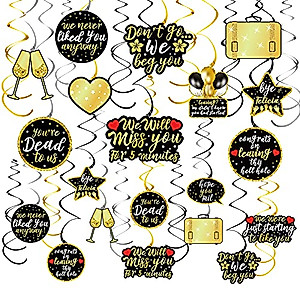 we never
liked You
anyway!
Don't go...
We
beg you
bye
Felicia
You're
Dead
to us
We Will
Miss you
For 5 minutes
congrats
on
leaving
thy
hell hole
we never
liked You
anyway!
bye
Felicia
You're
Dead
to us
hope
you
fail
we were
just starting
to like you
congrats
on
leaving
thy
hell hole
We Will
Miss you
For 5 minutes
Don't go...
We
beg you